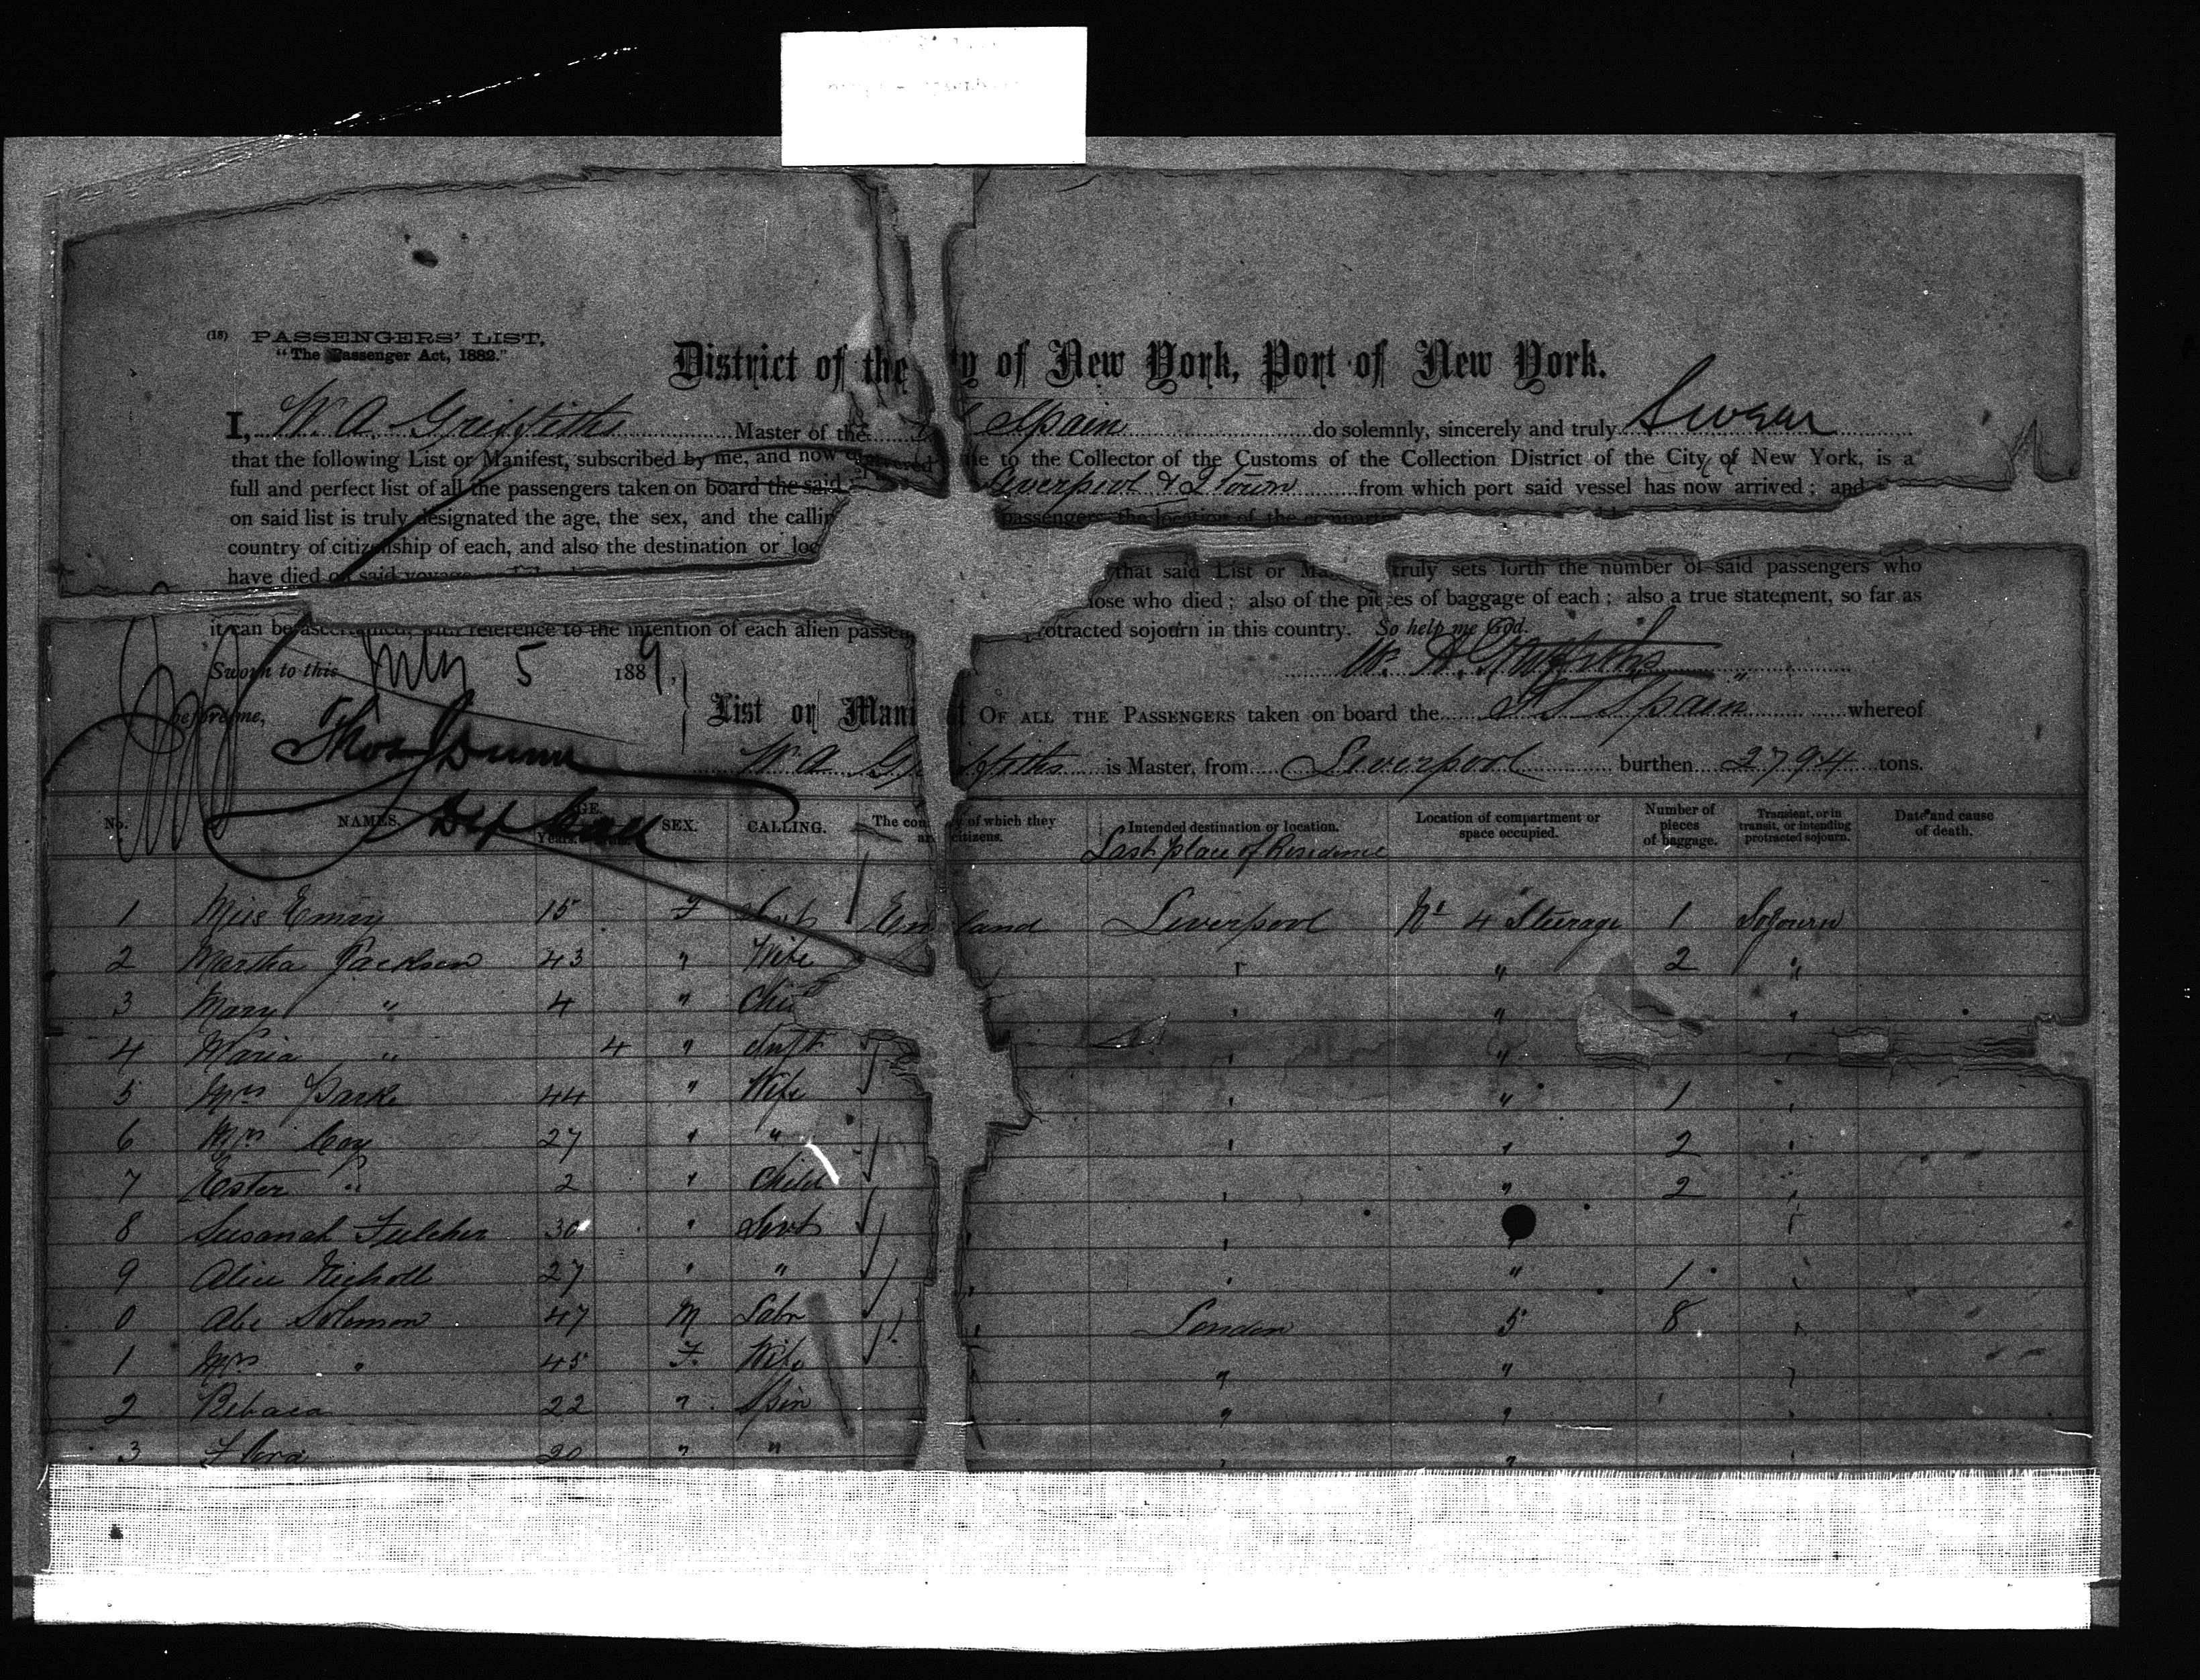 (18) PASSENGERS' LIST,
"The Passenger Act, 1882."
District of the y of New York, Port of New York.
I, W. A. Griffiths Master of the Spain do solemnly, sincerely and truly Swear
that the following List or Manifest, subscribed by me, and now delivered me to the Collector of the Customs of the Collection District of the City of New York, is a
full and perfect list of all the passengers taken on board the said Liverpool & Qtown from which port said vessel has now arrived; and
on said list is truly designated the age, the sex, and the callin passengers, the location of the
country of citizenship of each, and also the destination or loc
have died on said voyage that said List or Ma truly sets forth the number of said passengers who
hose who died; also of the pieces of baggage of each; also a true statement, so far as
it can be ascertained, with reference to the intention of each alien passen rotracted sojourn in this country. So help me God.
Sworn to this July 5 1889, W. A. Griffiths
before me, List or Mani t OF ALL THE PASSENGERS taken on board the SS Spain whereof
Thos Dunn
W A Griffiths is Master, from Liverpool burthen 2794 tons.
Dep Coll
No. NAMES. AGE. Years. SEX. CALLING. The coun y of which they are citizens. Intended destination or location. Location of compartment or space occupied. Number of pieces of baggage. Transient, or in transit, or intending protracted sojourn. Date and cause of death.
Last place of Residence
1 Miss Emery 15 F Servt En land Liverpool No 4 Steerage 1 Sojourn
2 Martha Jackson 43 " Wife " " 2 "
3 Mary " 4 " Chil " " "
4 Maria " 4 " Inft " " "
5 Mrs Parke 44 " Wife " " 1 "
6 Mrs Coy 27 " " " " 2 "
7 Ester " 2 " Child " " 2 "
8 Susanah Fulcher 30 " Servt " " "
9 Alice Nicholl 27 " " " " " 1 "
0 Abe Solomon 47 M Labr " London 5 8 "
1 Mrs " 45 F. Wife " " " "
2 Rebaca 22 " Spin " " "
3 Flora 20 " " " " "